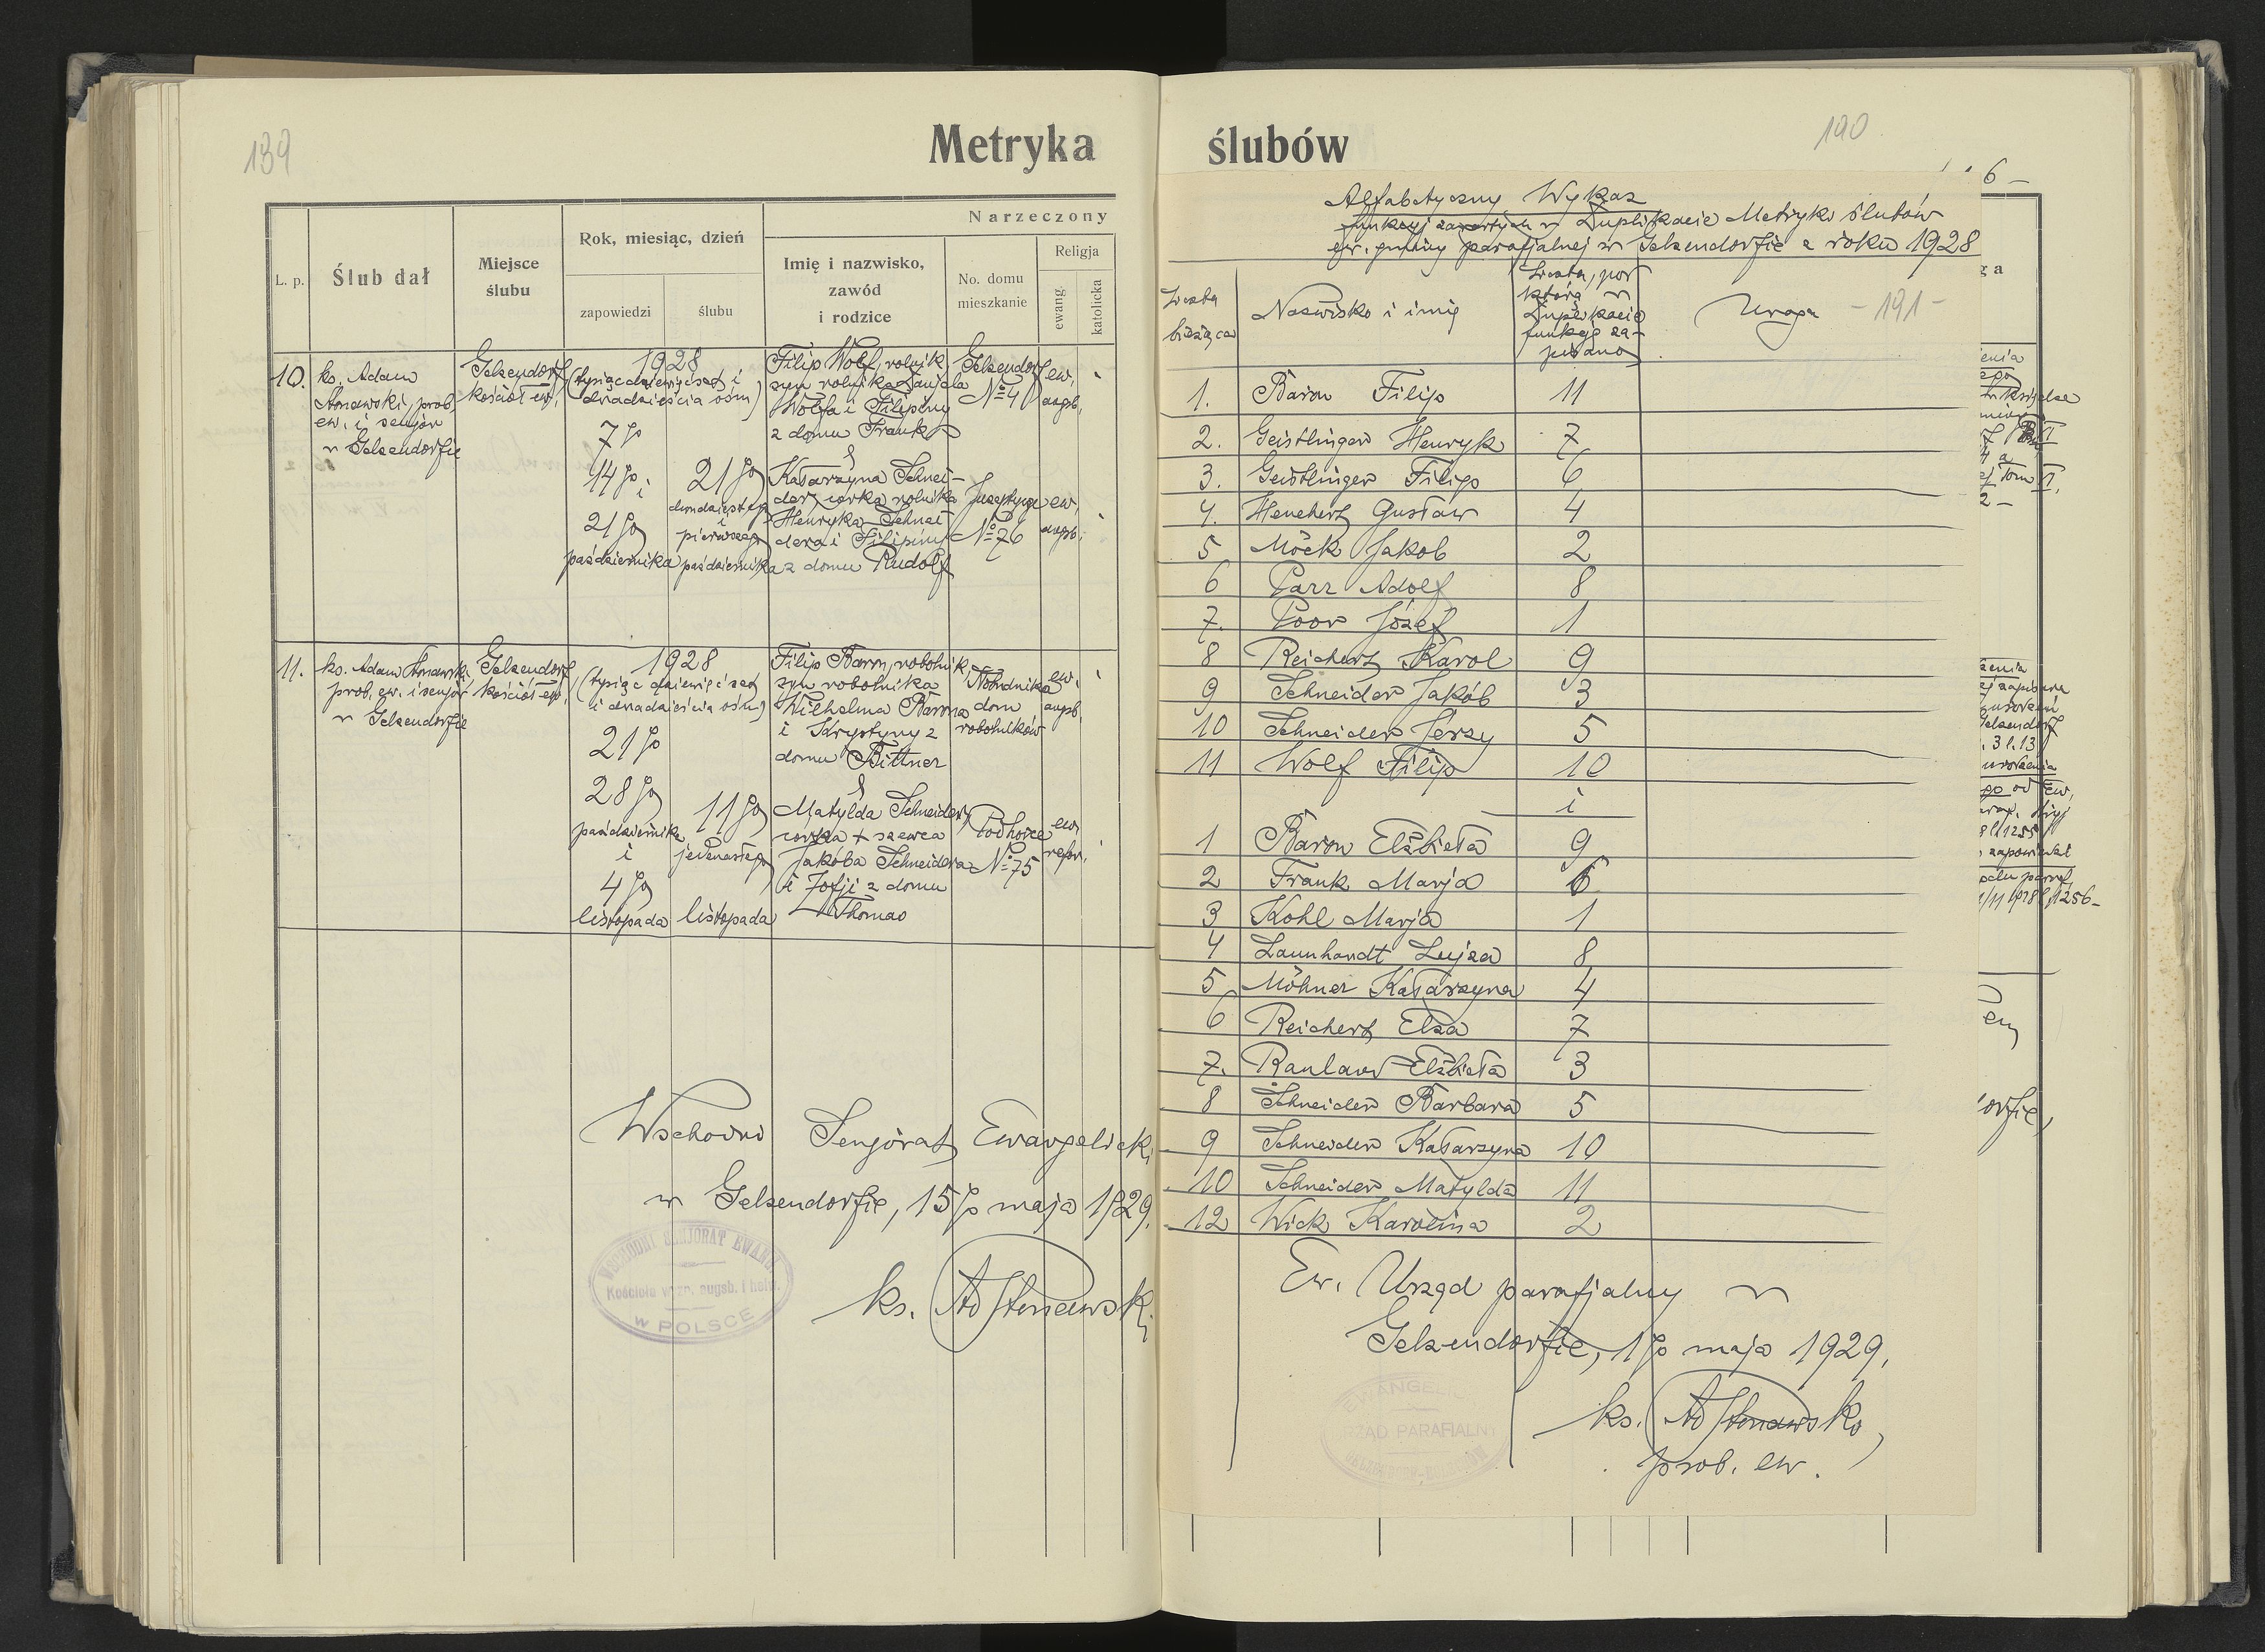 189
Metryka
L. p.
Ślub dał
Miejsce ślubu
Rok, miesiąc, dzień
zapowiedzi
ślubu
Narzeczony
Imię i nazwisko, zawód i rodzice
No. domu mieszkanie
Religja
ewang.
katolicka
10.
ks. Adam
Stonawski, prob.
ew. i senjor
w Gelsendorfie
Gelsendorf
kościół ew.
1928
(tysiąc dziewięćset i
dwadzieścia ośm)
7go
14go i
21go
października
21go
dwudziestego
i
pierwszego
października
Filip Wolf, rolnik
syn rolnika Danjela
Wolfa i Filipiny
z domu Frank
&
Katarzyna Schnei-
der, córka rolnika
Henryka Schnei-
dera i Filipiny
z domu Rudolf
Gelsendorf
No 4
No 76
ew.
augsb.
ew.
augsb.
11.
ks. Adam Stonawski,
prob. ew. i senjor
w Gelsendorfie
Gelsendorf
kościół ew.
1928
(tysiąc dziewięćset
i dwadzieścia ośm)
21go
28go
października
i
4go
listopada
11go
jedenastego
listopada
Filip Baron, robotnik,
syn robotnika
Wilhelma Barona
i Krystyny z
domu Bittner
&
Matylda Schneider,
córka + szewca
Jakóba Schneidera
i Zofji z domu
Thomas
dom
robotników
Podhorce
No 75
ew.
augsb.
ew.
refor.
Wschodni Senjorat Ewangelicki
w Gelsendorfie, 15go maja 1929.
WSCHODNI SENJORAT EWANG.
Kościoła wyzn. augsb. i helw.
W POLSCE
ks. Ad Stonawski
ślubów
190
6 -
Alfabetyczny Wykaz
funkcyj zawartych w Duplikacie Metryki ślubów
ew. gminy parafjalnej w Gelsendorfie z roku 1928
Liczba
bieżąca
Nazwisko i imię
Liczba, pod
którą w
Duplikacie
funkcję za-
pisano
Uwaga
- 191 -
1. Baron Filip 11
2. Geistlinger Henryk 7
3. Geistlinger Filip 6
4. Henchert Gustaw 4
5 Möck Jakob 2
6 Parr Adolf 8
7. Poor Józef 1
8 Reichert Karol 9
9 Schneider Jakób 3
10 Schneider Jerzy 5
11 Wolf Filip 10
i
1 Baron Elżbieta 9
2 Frank Marja 6
3 Kohl Marja 1
4 Launhardt Lujza 8
5 Möhner Katarzyna 4
6 Reichert Elza 7
7. Elżbieta 3
8 Schneider Barbara 5
9 Schneider Katarzyna 10
10 Schneider Matylda 11
12 Wick Karolina 2
Ew. Urząd parafjalny w
Gelsendorfie, 1go maja 1929.
ks. Ad Stonawski,
prob. ew.